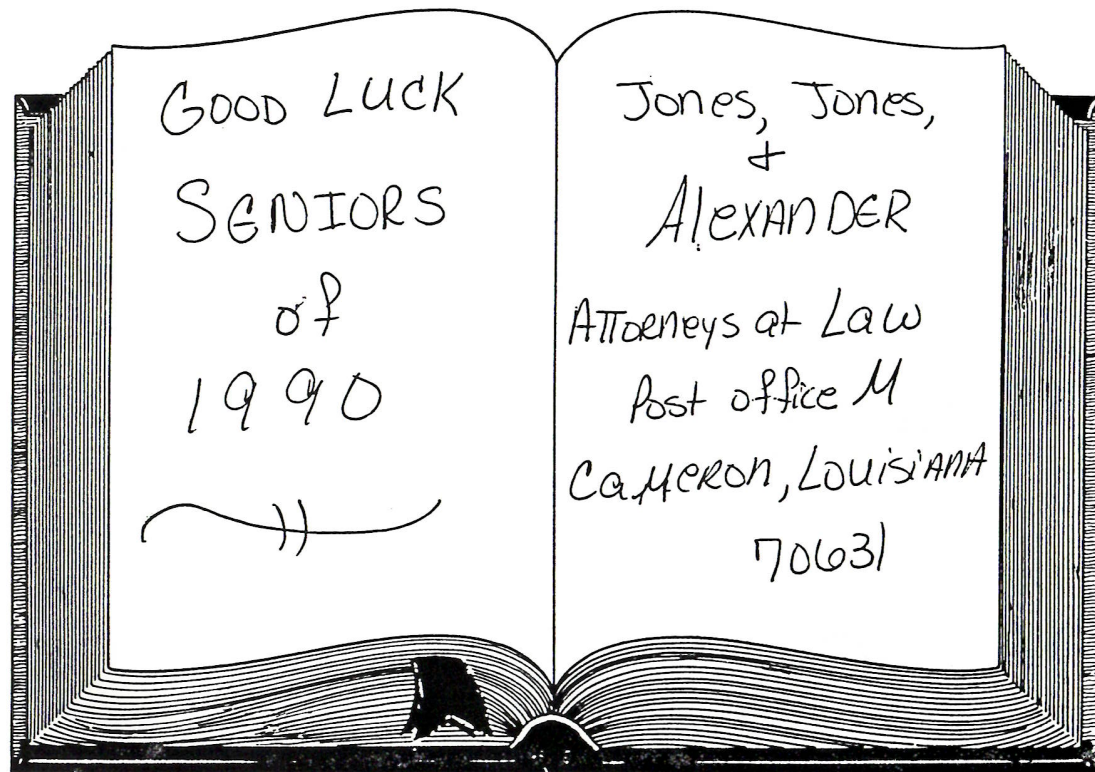 GOOD LUCK
SENIORS
of
1990
Jones, Jones,
+
AlexANDER
ATTorneys at Law
Post office M
CaMeRon, LouisiANA
70631